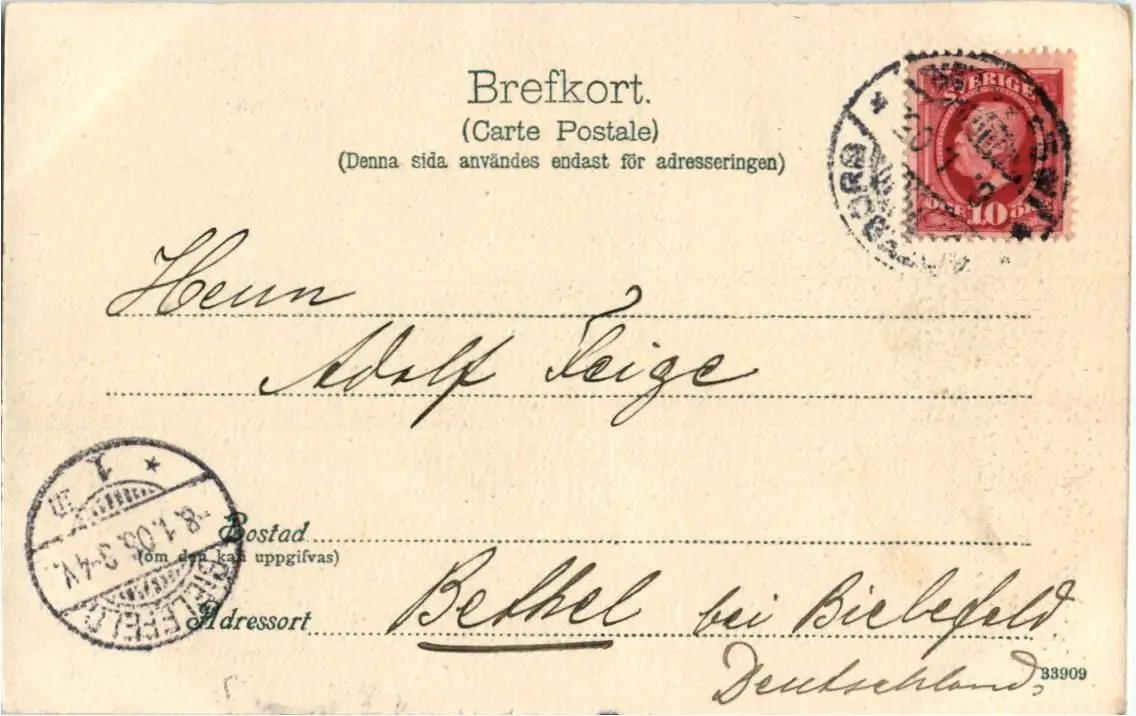 Brefkort.
(Carte Postale)
(Denna sida användes endast för adresseringen)
SVERIGE
10 ÖRE
Herrn
Adolf Feige
Bostad
(om den kan uppgifvas)
Adressort
Bethel bei Bielefeld
Deutschland
33909
BIELEFELD
1
8.1.06. 3-4V.